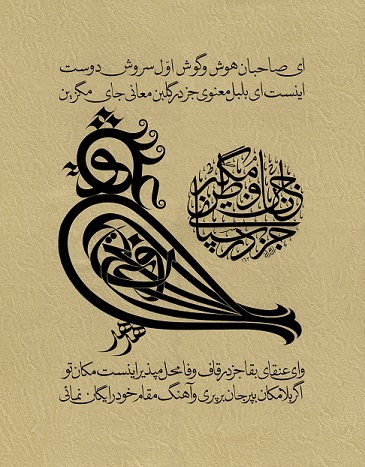 ای صاحبان هوش و گوش اوّل سروش دوست
اینست ای بلبل معنوی جز در گلبن معانی جای مگزین
هدهد
جز در سبای جانان وطن مگیر
وای عنقای بقا جز در قاف وفا محل مپذیر اینست مکان تو
اگر بلامکان بپر جان برپری و آهنگ مقام خود رایگان نمائی